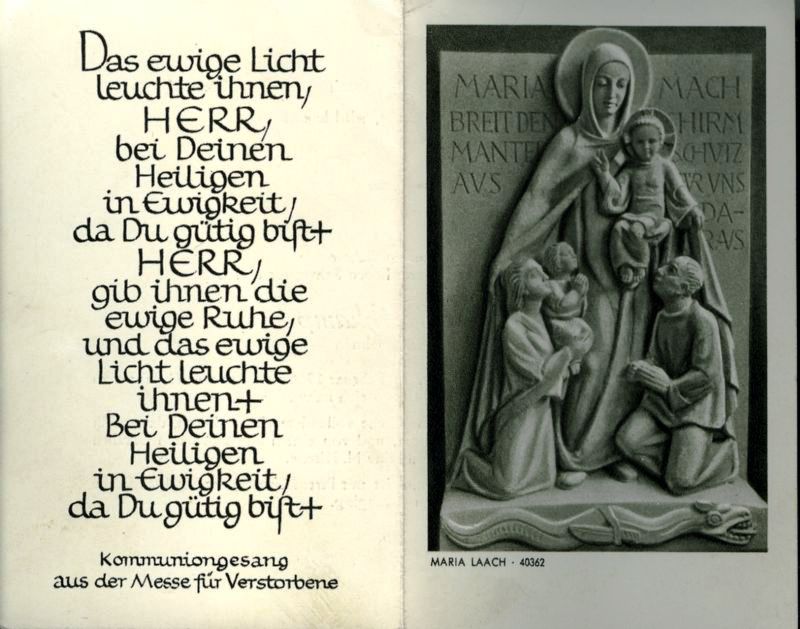 Das ewige Licht
leuchte ihnen,
HERR,
bei Deinen
Heiligen
in Ewigkeit,
da Du gütig bist+
HERR,
gib ihnen die
ewige Ruhe,
und das ewige
Licht leuchte
ihnen+
Bei Deinen
Heiligen
in Ewigkeit,
da Du gütig bist+
Kommuniongesang
aus der Messe für Verstorbene
MARIA MACH
BREIT DEN HIRM
MANTEL SCHVTZ
AVS FVR VNS
DA-
RAVS
MARIA LAACH · 40362